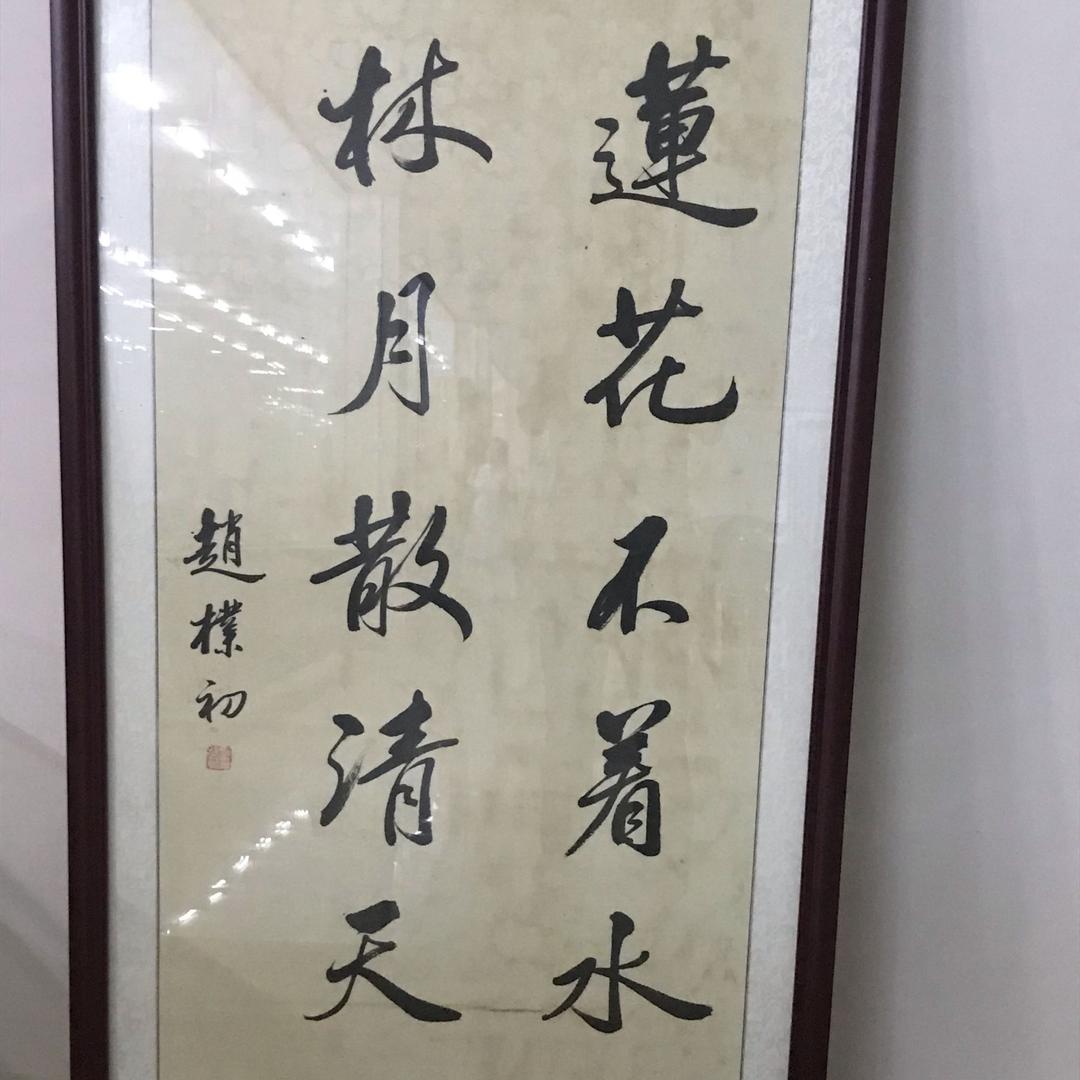 蓮花不着水
林月散清天
趙樸初